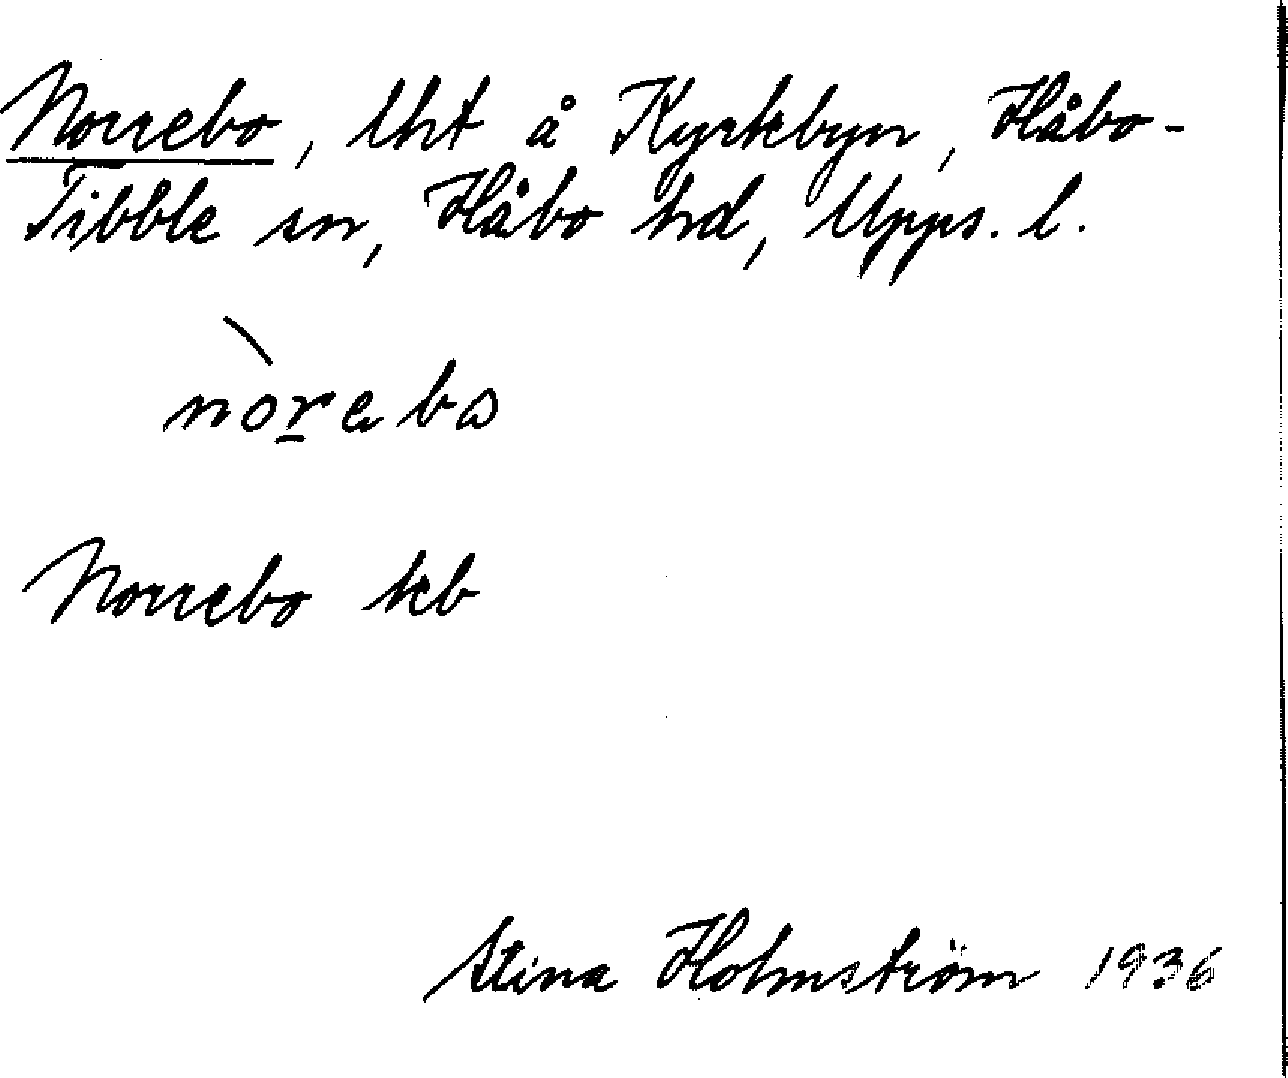 Norrebo, lht å Kyrkbyn, Håbo-
Tibble sn, Håbo hd, Upps. l.
nòrebo
Norrebo kb
Stina Holmström 1936